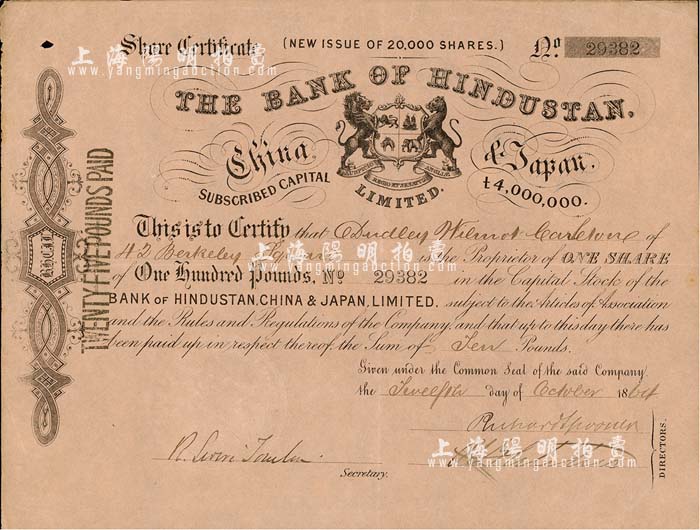 Share Certificate (NEW ISSUE OF 20,000 SHARES.) No 29382
上海陽明拍賣
www.yangmingauction.com
THE BANK OF HINDUSTAN,
China & Japan,
SUBSCRIBED CAPITAL LIMITED. £4,000,000.
This is to Certify that Dudley Wilmot Carleton of
42 Berkeley Square is the Proprietor of ONE SHARE
上海陽明拍賣
www.yangmingauction.com
of One Hundred Pounds, No 29382 in the Capital Stock of the
BANK OF HINDUSTAN, CHINA & JAPAN, LIMITED. subject to the Articles of Association
and the Rules and Regulations of the Company and that up to this day there has
been paid up in respect thereof the Sum of Ten Pounds.
Given under the Common Seal of the said Company
the Twelfth day of October 1864
Richard Spooner
上海陽明拍賣
www.yangmingauction.com
Secretary.
DIRECTORS.
TWENTY FIVE POUNDS PAID
BHCJL